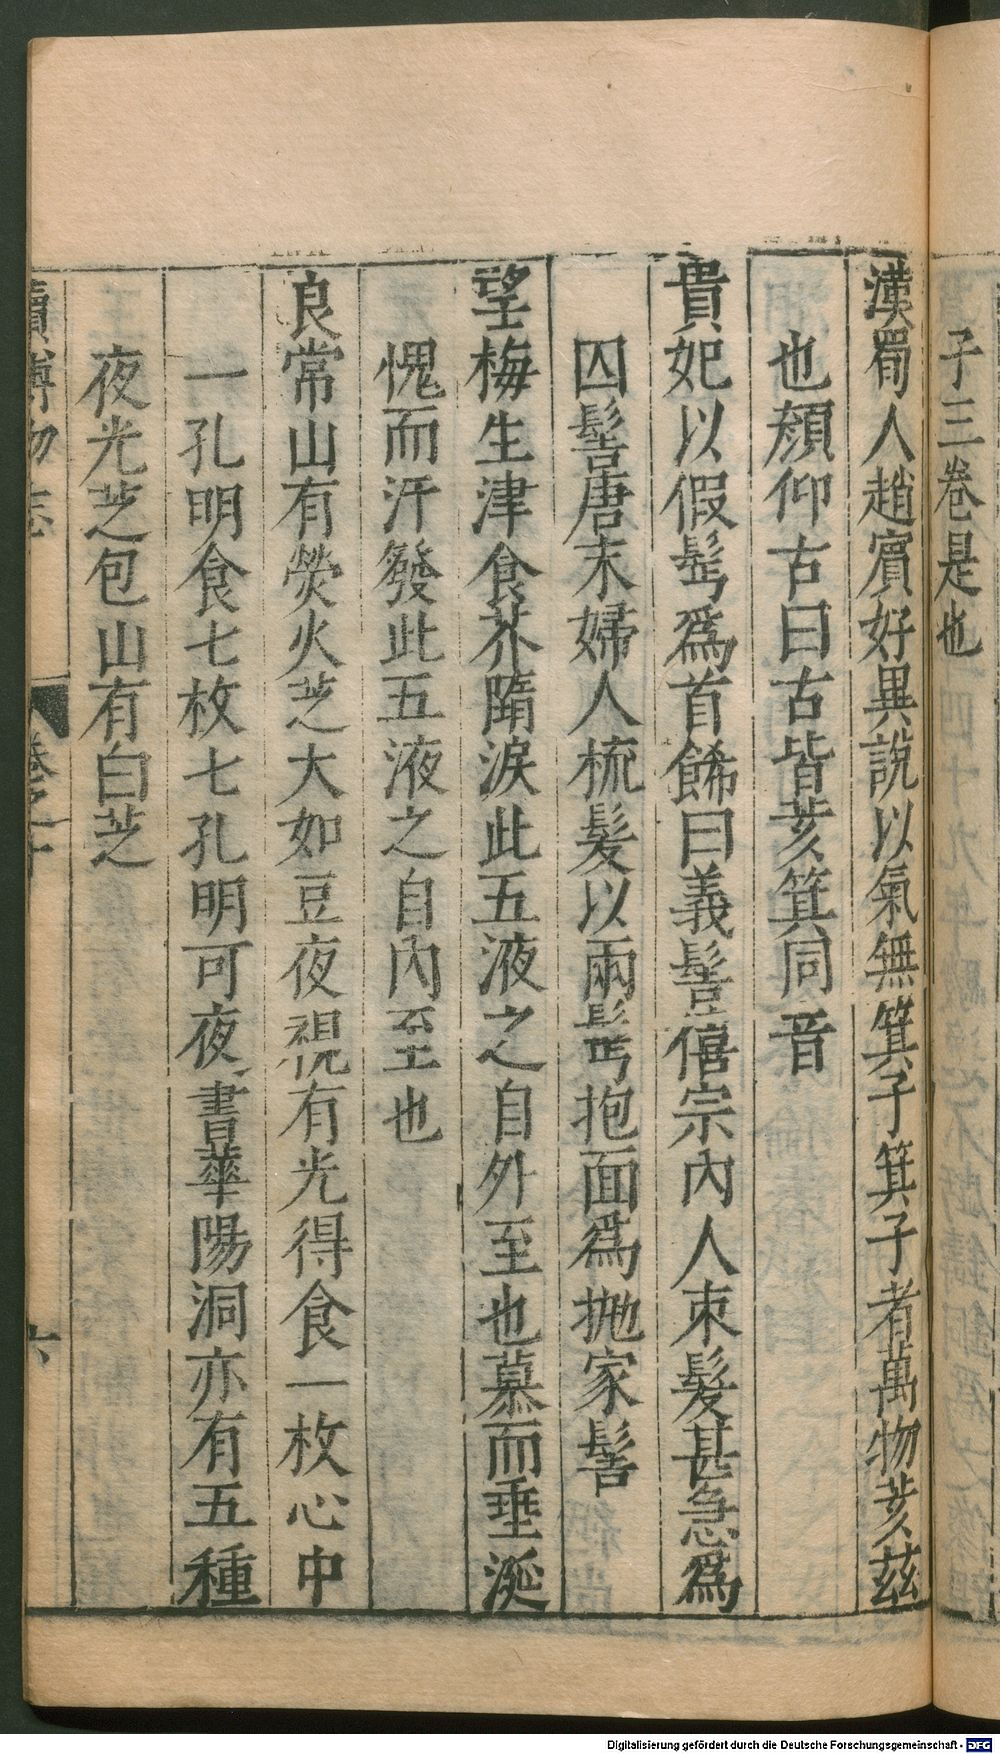 子三卷是也
漢蜀人趙賓好異說以氣無箕子箕子者萬物荄茲
也顏仰古曰古皆荄箕同音
貴妃以假髩爲首餙曰義髻僖宗內人束髮甚急爲
囚髻唐末婦人梳髮以兩髩抱面爲抛家髻
望梅生津食芥隋淚此五液之自外至也慕而垂涎
愧而汗發此五液之自內至也
良常山有熒火芝大如豆夜視有光得食一枚心中
一孔明食七枚七孔明可夜書華陽洞亦有五種
夜光芝包山有白芝
續博物志
卷之十
六
Digitalisierung gefördert durch die Deutsche Forschungsgemeinschaft - DFG